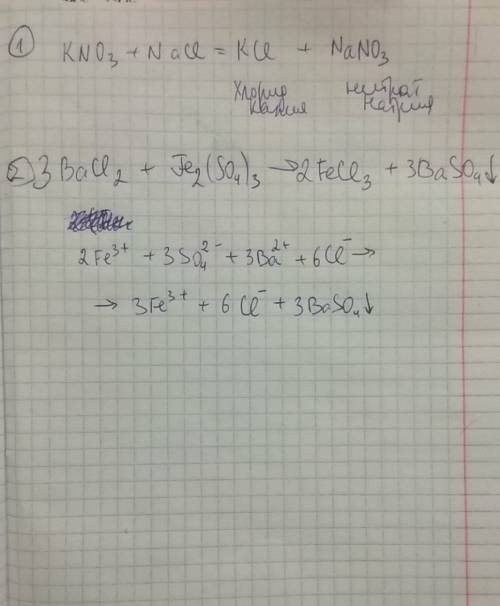 1 KNO₃ + NaCl = KCl + NaNO₃
Хлорид нитрат
калия натрия
2 3BaCl₂ + Fe₂(SO₄)₃ → 2FeCl₃ + 3BaSO₄↓
2Fe³⁺ + 3SO₄²⁻ + 3Ba²⁺ + 6Cl⁻ →
→ 3Fe³⁺ + 6Cl⁻ + 3BaSO₄↓